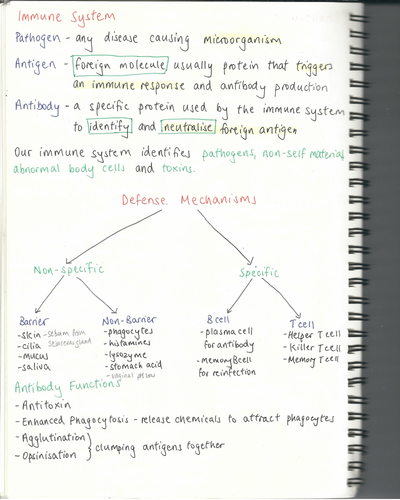 Immune System
Pathogen - any disease causing microorganism
Antigen - foreign molecule usually protein that triggers
an immune response and antibody production
Antibody - a specific protein used by the immune system
to identify and neutralise foreign antigen
Our immune system identifies pathogens, non-self material,
abnormal body cells and toxins.
Defense Mechanisms
Non-specific
Specific
Barrier
-skin -sebum from
sebaceous gland
-cilia
-mucus
-saliva
Non-Barrier
-phagocytes
-histamines
-lysozyme
-stomach acid
-vaginal pH low
B cell
-plasma cell
for antibody
-Memory B cell
for reinfection
T cell
-Helper T cell
-Killer T cell
-Memory T cell
Antibody Functions
-Antitoxin
-Enhanced Phagocytosis - release chemicals to attract phagocytes
-Agglutination
-Opsinisation
clumping antigens together